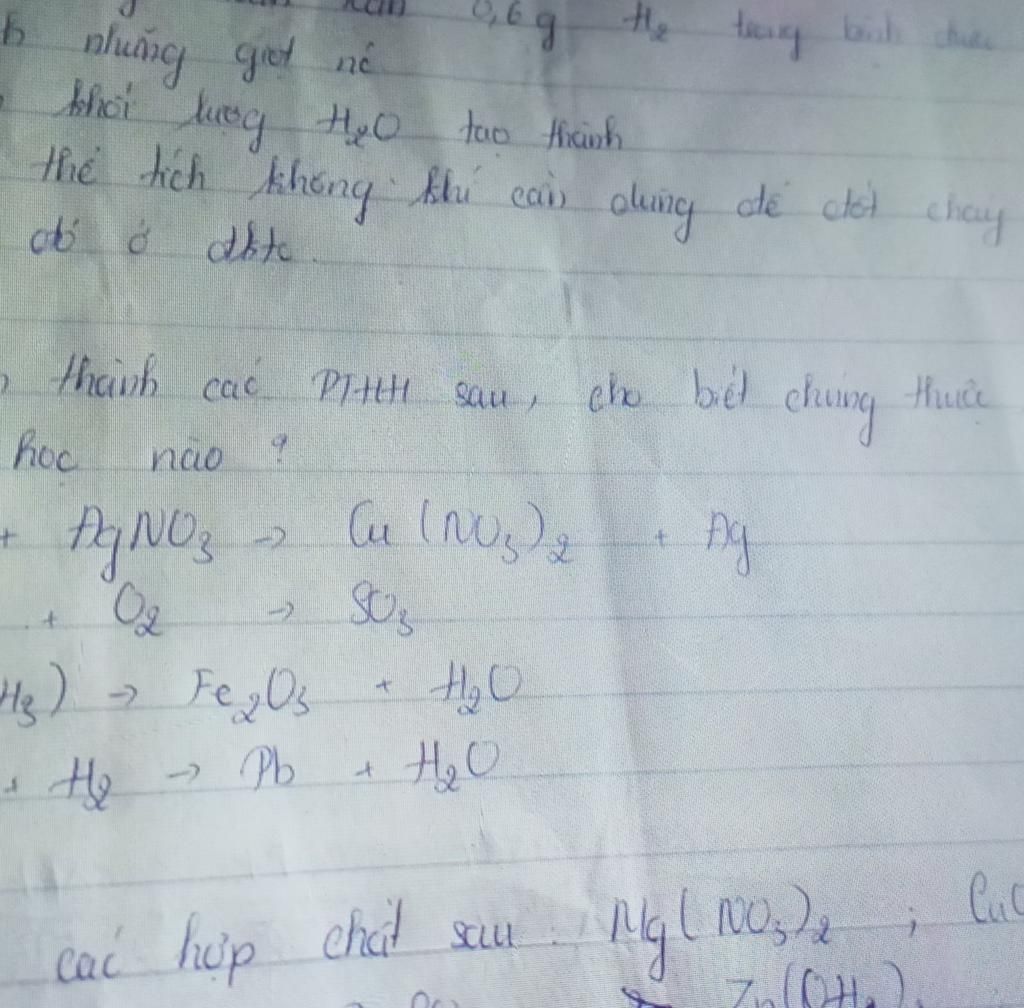 0,6g H2 trong bình chứa
những giọt nc
khối lượng H2O tạo thành
thể tích không khí cần dùng để đốt cháy
đó ở đktc
thành các PTHH sau, cho biết chúng thuộc
học nào ?
+ AgNO3 → Cu (NO3)2 + Ag
+ O2 → SO3
H3) → Fe2O3 + H2O
+ H2 → Pb + H2O
các hợp chất sau Mg(NO3)2 ;
Zn(OH2)